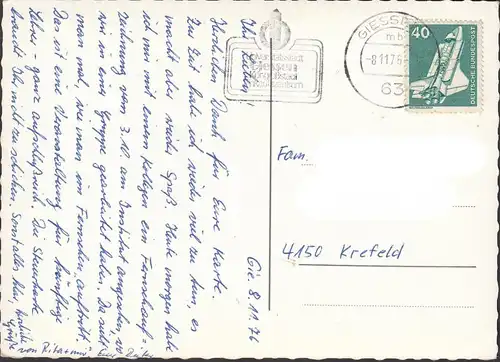 Gie. 8.11.76
Ihr Lieben!
Herzlichen Dank für Eure Karte.
Zur Zeit habe ich wieder viel zu tun, es
macht aber viel Spaß. Heute morgen habe
ich mir mit einem Kollegen ein Fernsehauf-
zeichnung vom 3.10. am Institut angesehen, wo
wir in einer Gruppe gearbeitet haben. Da sieht
man mal, wie man im Fernsehen auftritt.
Das ist eine Veranstaltung für
Lehrer, ganz aufschlußreich. Die Steuerkarte
braucht Ihr nicht zu schicken. Sonst alles klar, herzliche
Grüße von Rita + mir Euer Dieter
GIESSEN
mb
-8.11.76
63
40
DEUTSCHE BUNDESPOST
Fam.
4150 Krefeld